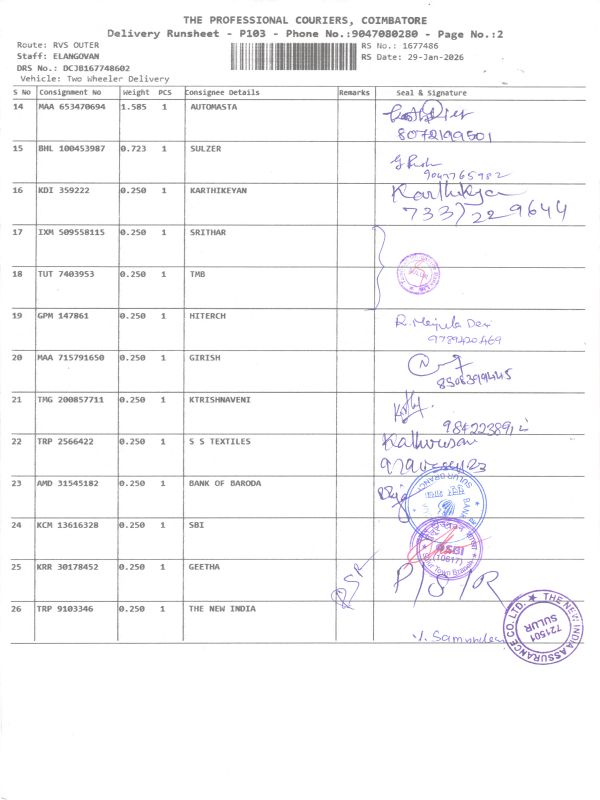 THE PROFESSIONAL COURIERS, COIMBATORE
Delivery Runsheet - P103 - Phone No.:9047080280 - Page No.:2
Route: RVS OUTER RS No.: 1677486
Staff: ELANGOVAN RS Date: 29-Jan-2026
DRS No.: DCJB167748602
Vehicle: Two Wheeler Delivery
S No Consignment No Weight PCS Consignee Details Remarks Seal & Signature
14 MAA 653470694 1.585 1 AUTOMASTA
8072199501
15 BHL 100453987 0.723 1 SULZER
9047765982
16 KDI 359222 0.250 1 KARTHIKEYAN Karthikeya
733/229644
17 IXM 509558115 0.250 1 SRITHAR
18 TUT 7403953 0.250 1 TMB
19 GPM 147861 0.250 1 HITERCH R. Manjula Devi
9789420469
20 MAA 715791650 0.250 1 GIRISH
8508399445
21 TMG 200857711 0.250 1 KTRISHNAVENI
984223891
22 TRP 2566422 0.250 1 S S TEXTILES
23 AMD 31545182 0.250 1 BANK OF BARODA
SULUR BRANCH
24 KCM 13616328 0.250 1 SBI
SBI
(10817)
Town Branch
25 KRR 30178452 0.250 1 GEETHA P/S/R
26 TRP 9103346 0.250 1 THE NEW INDIA
THE NEW INDIA ASSURANCE CO. LTD.
721501
SULUR